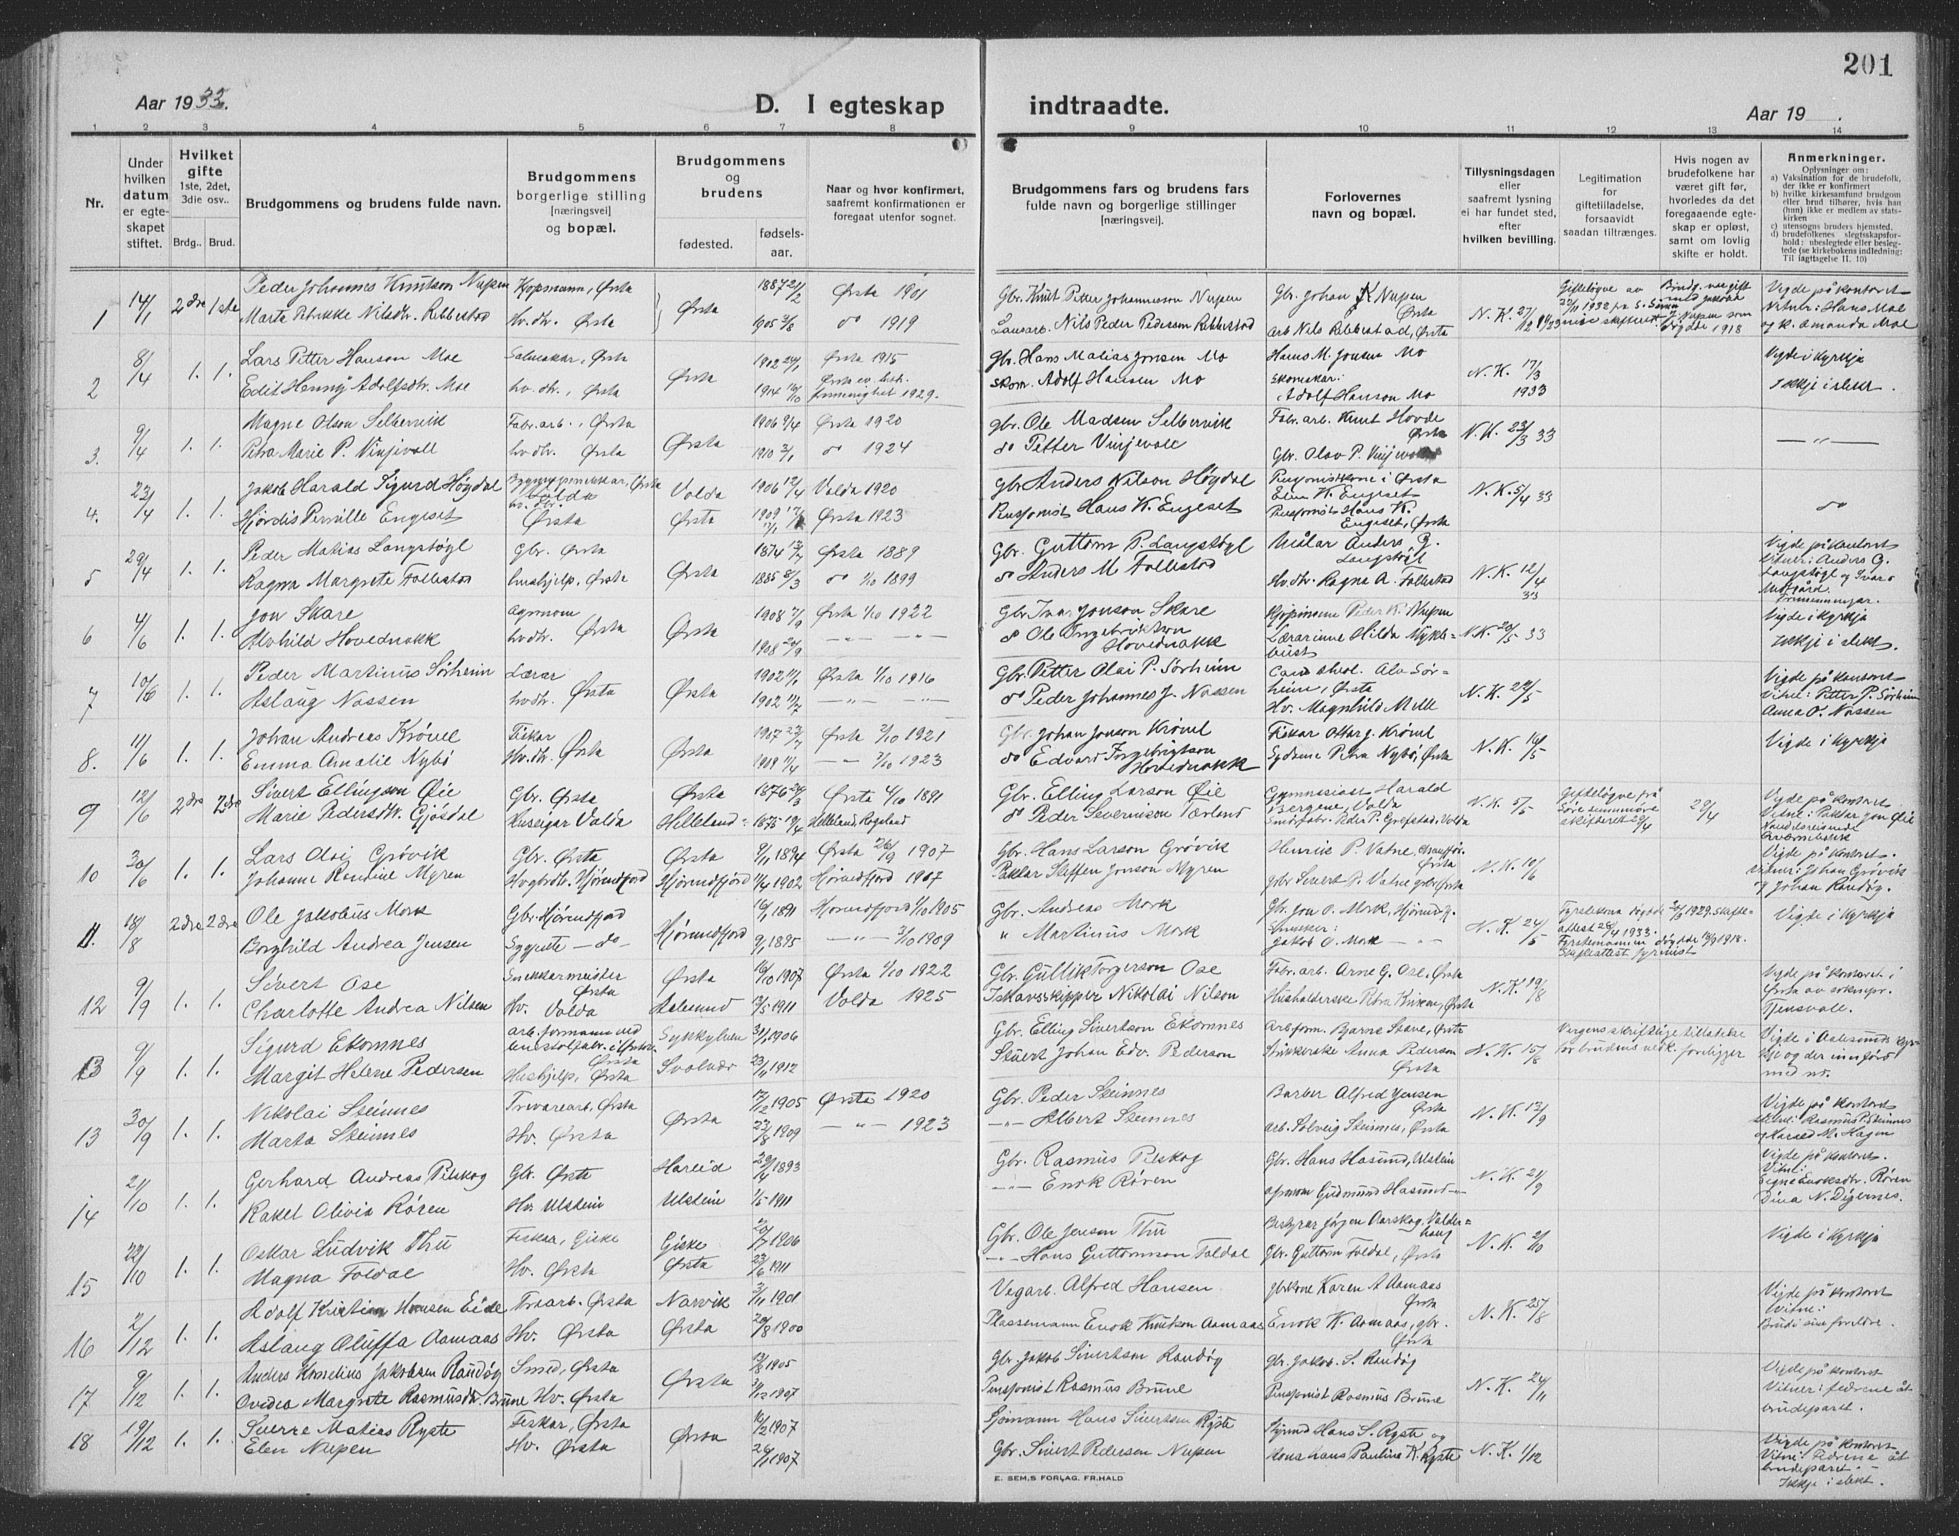 201
Aar 1933.
D. I egteskap
indtraadte.
Aar 19 .
1 2 3 4 5 6 7 8
9 10 11 12 13 14
Nr.
Under hvilken datum er egteskapet stiftet.
Hvilket gifte
1ste, 2det, 3die osv..
Brdg. Brud.
Brudgommens og brudens fulde navn.
Brudgommens borgerlige stilling [næringsvei] og bopæl.
Brudgommens og brudens
fødested.
fødselsaar.
Naar og hvor konfirmert, saafremt konfirmationen er foregaat utenfor sognet.
Brudgommens fars og brudens fars fulde navn og borgerlige stillinger [næringsvei].
Forlovernes navn og bopæl.
Tillysningsdagen eller saafremt lysning ei har fundet sted, efter hvilken bevilling.
Legitimation for giftetilladelse, forsaavidt saadan tiltrænges.
Hvis nogen av brudefolkene har været gift før, hvorledes da det foregaaende egteskap er opløst, samt om lovlig skifte er holdt.
Anmerkninger.
Oplysninger om:
a) Vaksination for de brudefolk, der ikke er konfirmert
b) hvilke kirkesamfund brudgom eller brud tilhører, hvis han (hun) ikke er medlem av statskirken
c) utensogns bruders hjemsted.
d) brudefolkenes slegtsskapsforhold: ubeslegtede eller beslegtede (se kirkebokens indledning: Til iagttagelse II. 10)
1 14/1 2dre 1ste Peder Johannes Knutson Nupen Kopmann, Ørsta Ørsta 1887 21/2 Ørsta 1901 Gbr. Knut Peter Johannesson Nupen Gbr. Johan K Nupen Ørsta N.K. 27/12 Vigde på kontoret
Marta Petrikke Nilsdtr. Ribbestad Hv.dtr. Ørsta 1905 do 1919 Nils Peder Pedersen Ribbestad arb Nils Ribbestad, Ørsta Vitner: Hans Moe og k. Amanda Moe
2 8/4 1. 1. Lars Petter Hanson Moe Salmakar, Ørsta Ørsta 1902 24/1 Ørsta 1915 gbr. Hans Matias Jonsen Mo Hans M. Jonsen Mo N.K. 17/3 1933 Vigde i kyrkja
Edit Henny Adolfsdtr. Moe hv. dtr., Ørsta 1914 16/10 1929. skom. Adolf Hansen Mo Skomakar: Adolf Hanson Mo Ikkje i slekt.
3. 9/4 1. 1. Magne Olson Selbervik Fabr. arb., Ørsta Ørsta 1906 9/4 Ørsta 1920 gbr. Ole Madsen Selbervik Fabr. arb. Knut Hovde Ørsta N.K. 23/3 33 — " —
Petra Marie P. Vinjevoll hv.dtr. Ørsta 1910 2/1 do 1924 do Petter Vinjevoll Gbr. Olav P. Vinjevoll
4. 23/4 1. 1. Jakob Harald Sigurd Høydal Volda Volda 1906 12/4 Volda 1920 gbr. Anders Nilson Høydal Elen K. Engeset N.K. 5/4 33 do
Hjørdis Pernille Engeset Ørsta Ørsta 1909 Ørsta 1923 Pensjonist Hans K. Engeset Pensjonist Hans K. Engeset, Ørsta
5 29/4 1. 1. Peder Matias Langstøyl Gbr. Ørsta Ørsta 1874 Ørsta 1889 Gbr. Guttorm P. Langstøyl Målar Anders G. Langstøyl N.K. 12/4 33 Vigde på kontoret
Ragna Margrete Follestad Hushjelp, Ørsta 1885 8/3 do 1/10 1899 do Anders M. Follestad Hv.dtr. Ragna A. Follestad Vitnir: Anders G. Langstøyl og Ivar
6 4/6 1. 1. Jon Skare Agronom Ørsta Ørsta 1908 Ørsta 1/10 1922 Gbr. Ivar Jonson Skare Kjøpmann Peder K. Nupen N.K. 20/5 33 Vigde i kyrkja
Alvhild Hovednakk hv.dtr. 1908 24/9 — " — do Ole Ingebriktson Hovednakk Lærarinne Hilda Myklebust Ikkje i slekt.
7 10/6 1. 1. Peder Martinus Sørheim Lærar Ørsta Ørsta 1902 Ørsta 1/10 1916 Gbr. Petter Olai P. Sørheim Cand theol. Alv Sørheim, Ørsta N.K. 24/5 Vigde på kontoret
Aslaug Nossen hv.dtr. 1902 — " — do Peder Johannes J. Nossen Hv. Magnhild Melle Vitner: Petter P. Sørheim Anna O. Nossen
8. 11/6 1. 1. Johan Andreas Krøvel Fiskar Ørsta Ørsta 1907 Ørsta 2/10 1921 Gbr. Johan Jonson Krøvel Fiskar Ottar J. Krøvel N.K. 16/5 Vigde i kyrkja
Emma Amalie Nybø Hv.dtr. 1909 11/4 — " — 2/10 1923 do Edvard Ingebrigtson Hovednakk Sydame Petra Nybø, Ørsta
9 12/6 2dre 2dre Sivert Ellingsen Øie Gbr. Ørsta Ørsta 1876 24/3 Ørsta 4/10 1891 Gbr. Elling Larson Øie Gymnasiast Harald Bergene, Volda N.K. 5/5 Giftelögve på Søre Sunnmøre skifterett 29/4 Vigde på kontoret
Marie Pedersdtr. Gjösdal Huseigar Volda Helleland 1875 19/4 Helleland, Rogaland do Peder Severinson Tærland Småfabr. Peder P. Grefstad, Volda
10 30/6 1. 1. Lars Olai Grøvik Gbr. Ørsta Ørsta 9/11 1894 Ørsta 26/9 1907 Gbr. Hans Larson Grøvik Henrik P. Vatne, chauffør. Ørsta N.K. 10/6 Vigde på kontoret.
Johanne Rendine Myren Hjørundfjord Hjørundfjord 1/4 1902 Hjørundfjord 1917 Steffen Jonson Myren gbr Sivert P. Vatne gbr Ørsta Vitner: Johan Grøvik og Johan Randøy.
11. 18/8 2dre 2dre Ole Jakobus Mork Gbr. Hjørundfjord Hjørundfjord 16/1 1891 Hjørundfjord 1/10 1905 Gbr. Andreas Mork Gbr. Jon O. Mork, Hjørundfj. N.K. 24/5 Vigde i kyrkja
Borghild Andrea Jensen Sygjente — do — 9/1 1895 — " — 3/10 1909 " Martinus Mork Jakob O. Mork — " —
12 9/9 1. 1. Sivert Ose Snikkarmeister Ørsta Ørsta 16/10 1907 Ørsta 1/10 1922 Gbr. Gullik Torgerson Ose Fabr. arb. Arne G. Ose, Ørsta N.K. 19/8 Vigde på kontoret i Ørsta av sokmpr. Tjensvoll.
Charlotte Andrea Nilsen Hv. Volda Aalesund 3/5 1911 Volda 1925 Ishavsskipper Nikolai Nilson
13 9/9 1. 1. Sigurd Ekornnes arb. formann ved Ørsta Sykkylven 31/1 1906 Gbr. Elling Sivertson Ekornnes Arbform. Bjarne Stave, Ørsta N.K. 15/8 Vergens skriftlige tilladelse for brudens vedk. foreligger Vigde i Aalesund kyrkje og der innført med nr.
Margit Helene Pedersen Hushjelp, Ørsta Svolvær 23/11 1912 Sivert Johan Edv. Pederson Strikkerske Anna Pederson Ørsta
13 30/9 1. 1. Nikolai Steinnes Trevarearb., Ørsta Ørsta 17/12 1905 Ørsta 1920 Gbr. Peder Steinnes Barber Alfred Jensen Ørsta N.K. 12/9 Vigde på kontoret
Marta Steinnes Hv. Ørsta 23/8 1909 — " — 1923 — " — Albert Steinnes arb. Solveig Steinnes, Ørsta Vitne: Rasmus P. Steinnes og Harald M. Hagen
14 21/10 1. 1. Gerhard Andreas Pilskog Gbr. Ørsta Hareid 29/4 1893 Gbr. Rasmus Pilskog Gbr. Hans Hasund, Ulstein N.K. 21/9 Vigde på kontoret.
Rakel Olivia Røren Hv. Ulstein Ulstein 1/5 1911 — " — Enok Røren Gudmund Hasund — " — Vitne: Signe Enoksdtr. Røren Dina N. Digernes.
15 22/10 1. 1. Oskar Ludvik Thu Fiskar, Giske Giske 20/7 1906 Gbr. Ole Jensen Thu Bestyrar Jørgen Aarskog, Valderhaug N.K. 2/10 Vigde i kyrkja
Magna Foldal Hv. Ørsta Ørsta 23/6 1911 — " — Hans Guttormson Foldal Gbr. Guttorm Foldal, Ørsta
16 2/12 1. 1. Adolf Kristian Hansen Eide Traarb. Ørsta Narvik 3/11 1901 Vegarb. Alfred Hansen Karen A Aamaas Ørsta N.K. 25/8 Vigde på kontoret
Aslaug Oluffa Aamaas Hv. Ørsta Ørsta 20/8 1900 Plassemann Enok Knutson Aamaas Enok K. Aamaas, gbr. Ørsta Vitne: Brudi sine foreldre.
17 9/12 1. 1. Anders Kornelius Jakobsen Randøy Smed, Ørsta Ørsta 17/8 1905 Gbr. Jakob Sivertson Randøy Gbr. Jakob S. Randøy N.K. 24/11 Vigde på kontoret
Ovidia Margrete Rasmusdtr. Brune Hv. Ørsta 1907 Pensjonist Rasmus Brune Pensjonist Rasmus Brune Vitner: fedrene åt brudeparet.
18 19/12 1. 1. Sverre Matias Ryste Fiskar, Ørsta Ørsta 16/2 1907 Sjømann Hans Sivertsen Ryste Hans S. Ryste og N.K. 1/12 Vigde på kontoret
Elen Nupen Hv. Ørsta 26/1 1907 Gbr. Sivert Pedersen Nupen kona hans Pauline K. Ryste Vitne: Fedrene åt brudeparet. — Ikkje i slekt.
E. SEM,S FORLAG, FR.HALD